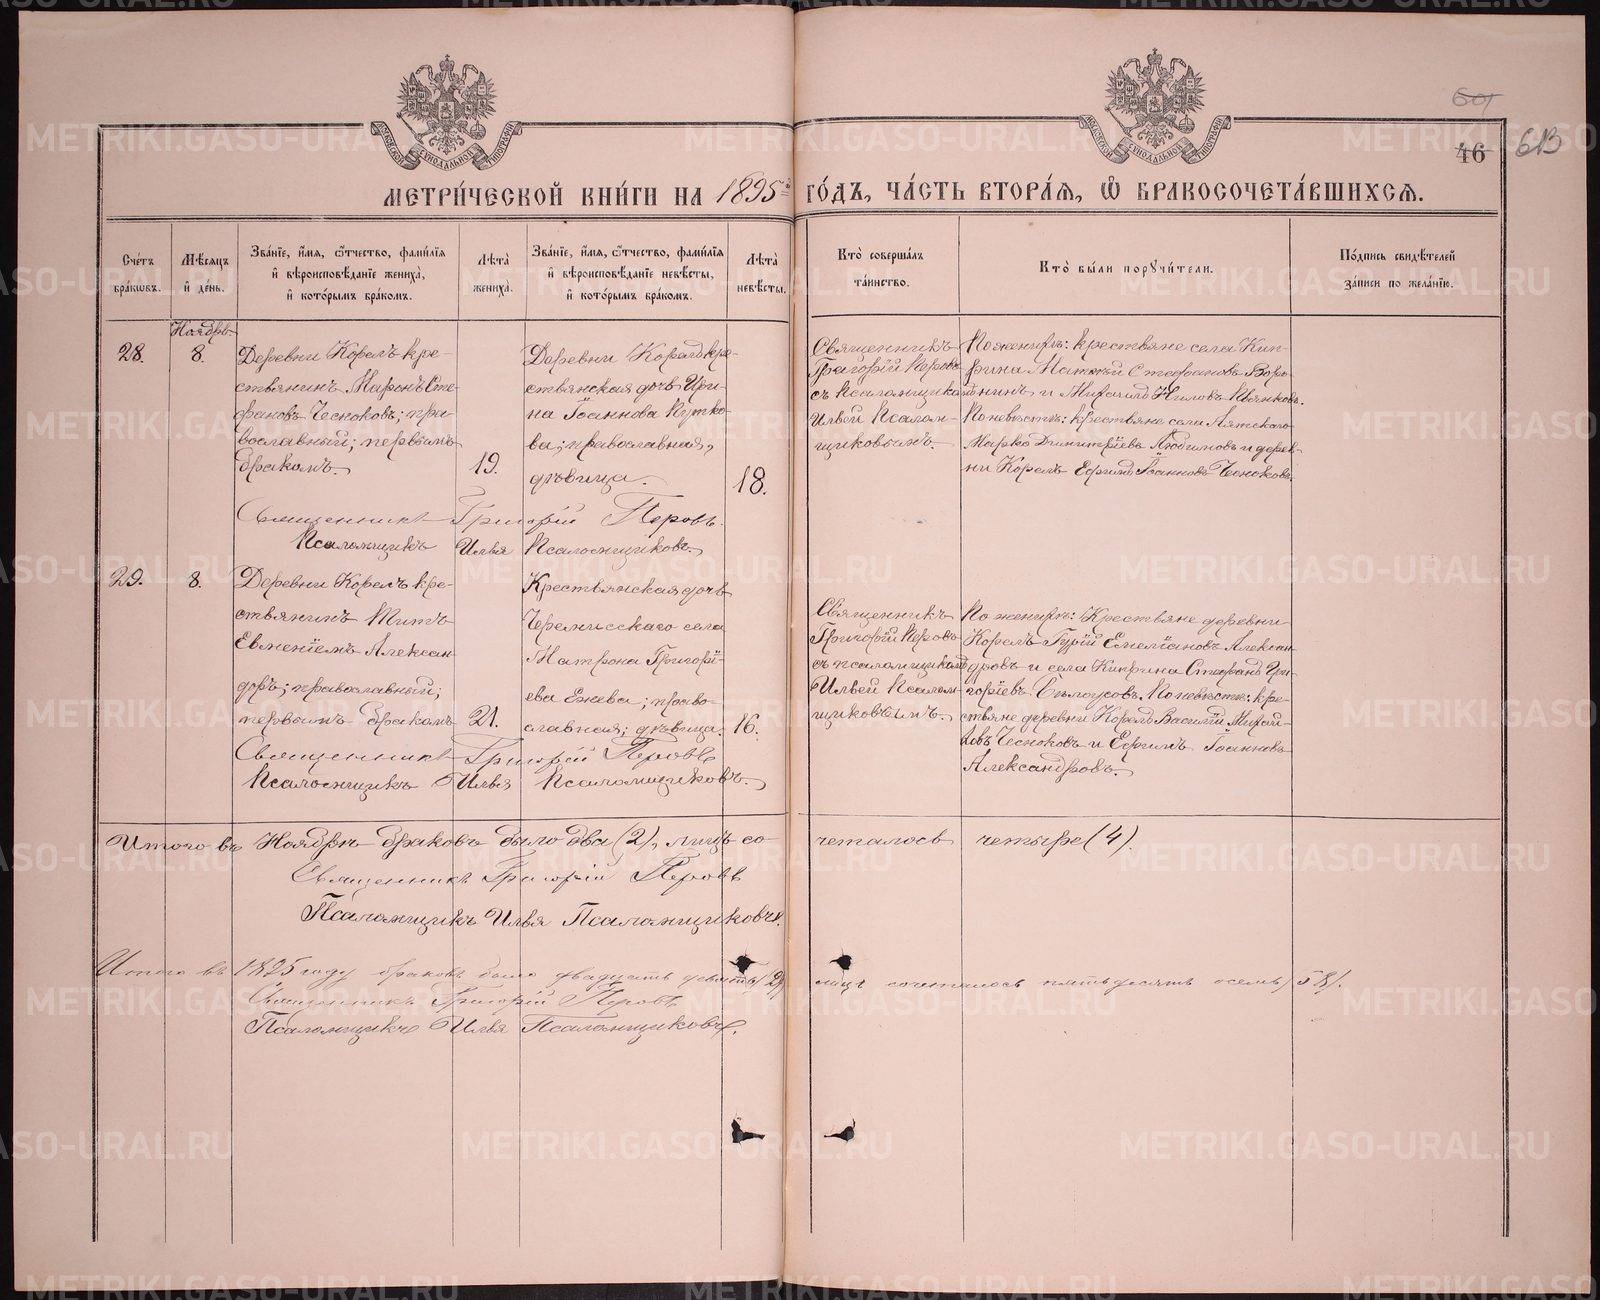 601
46
613
МЕТРИ́ЧЕСКОЙ КНИ́ГИ НА 1895й ГО́ДЪ, ЧА́СТЬ ВТОРА́Я, Ѽ БРАКОСОЧЕТА́ВШИХСЯ.
Сче́тъ бра́кѡвъ.
Мѣ́сяцъ и҆ де́нь.
Зва́нїе, и҆́мя, ѻ҆́тчество, фами́лїя и҆ вѣроисповѣ́данїе жениха̀, и҆ кото́рымъ бра́комъ.
Лѣ́та жениха̀.
Зва́нїе, и҆́мя, ѻ҆́тчество, фами́лїя и҆ вѣроисповѣ́данїе невѣ́сты, и҆ кото́рымъ бра́комъ.
Лѣ́та невѣ́сты.
Кто̀ соверша́лъ та́инство.
Кто̀ бы́ли порꙋчи́тели.
По́дпись свидѣ́телей за́писи по жела́нїю.
Ноябрь
28.
8.
Деревни Корелъ кре-
стьянинъ Маронъ Сте-
фановъ Чесноковъ; пра-
вославный; первымъ
бракомъ.
19.
Деревни Корелъ кре-
стьянская дочь Ири-
на Іоаннова Путко-
ва; православная,
дѣвица.
18.
Священникъ
Григорій Перовъ
съ псаломщикомъ
Ильей Псалом-
щиковымъ.
По женихѣ: крестьяне села Кип-
рина Матѳей Стефановъ Воро-
нинъ и Михаилъ Ниловъ
По невѣстѣ: крестьяне села Аятскаго
Марко Димитріевъ Любимовъ и дерев-
ни Корелъ Ефимъ Іоанновъ Чесноковъ.
Священникъ Григорій Перовъ.
Псаломщикъ Илья Псаломщиковъ.
29.
8.
Деревни Корелъ кре-
стьянинъ Титъ
Евменіевъ Алексан-
дровъ; православный;
первымъ бракомъ
21.
Крестьянская дочь
Черемисскаго села
Матрона Григорі-
ева Ежева; право-
славная; дѣвица.
16.
Священникъ
Григорій Перовъ
съ псаломщикомъ
Ильей Псалом-
щиковымъ.
По женихѣ: Крестьяне деревни
Корелъ Гурій Емеліановъ Алексан-
дровъ и села Киприна Стефанъ Гри-
горіевъ Бѣлоусовъ. По невѣстѣ: кре-
стьяне деревни Корелъ Василій Михай-
ловъ Чесноковъ и Ефимъ Іоанновъ
Александровъ.
Священникъ Григорій Перовъ
Псаломщикъ Илья Псаломщиковъ.
Итого въ Ноябрѣ браковъ было два (2), лицъ со-
четалось четыре (4).
Священникъ Григорій Перовъ
Псаломщикъ Илья Псаломщиковъ.
Итого въ 1895 году браковъ было двадцать девять (29) лицъ сочеталось пятьдесятъ осемь (58).
Священникъ Григорій Перовъ
Псаломщикъ Илья Псаломщиковъ.
METRIKI.GASO-URAL.RU